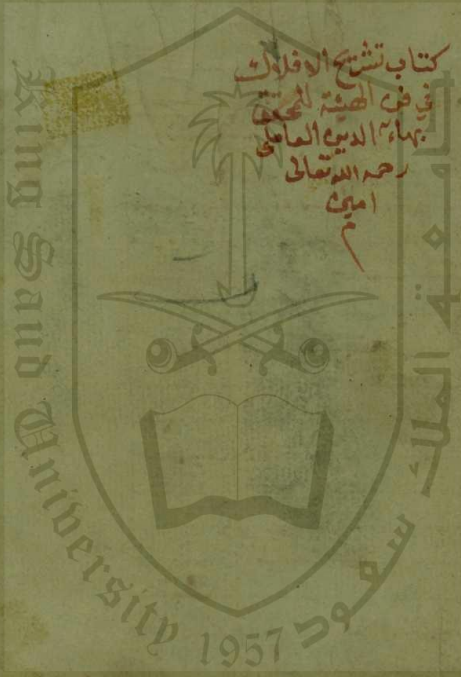 كتاب تشريح الافلاك
في فن الهيئة للمحقق
بهاء الدين العاملي
رحمه الله تعالى
امين
م
King Saud University
1957
جامعة الملك سعود